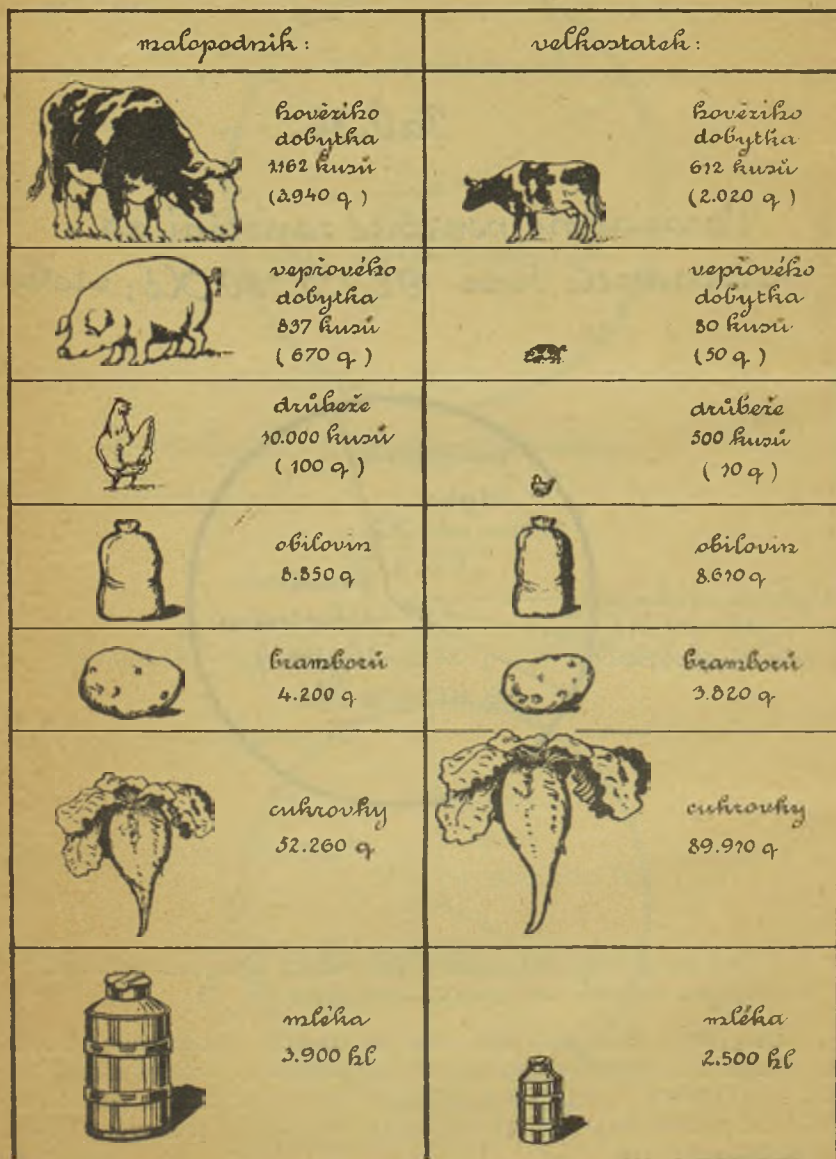 malopodnik:
velkostatek:
hovězího
dobytka
1162 kusů
(3.940 q)
hovězího
dobytka
612 kusů
(2.020 q)
vepřového
dobytka
837 kusů
(670 q)
vepřového
dobytka
80 kusů
(50 q)
drůbeže
10.000 kusů
(100 q)
drůbeže
500 kusů
(10 q)
obilovin
8.850 q
obilovin
8.610 q
bramborů
4.200 q
bramborů
3.820 q
cukrovky
52.260 q
cukrovky
89.910 q
mléka
3.900 hl
mléka
2.500 hl